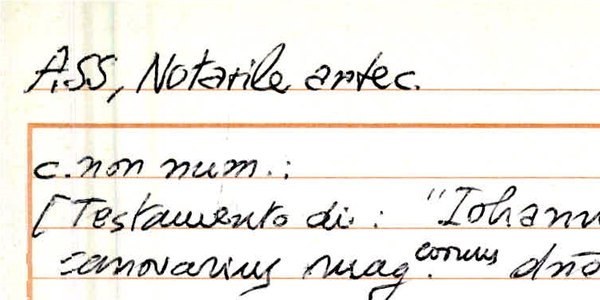 ASS, Notarile antec.
c. non num.:
[Testamento di: "Iohann
canovarius mag.corum dnō